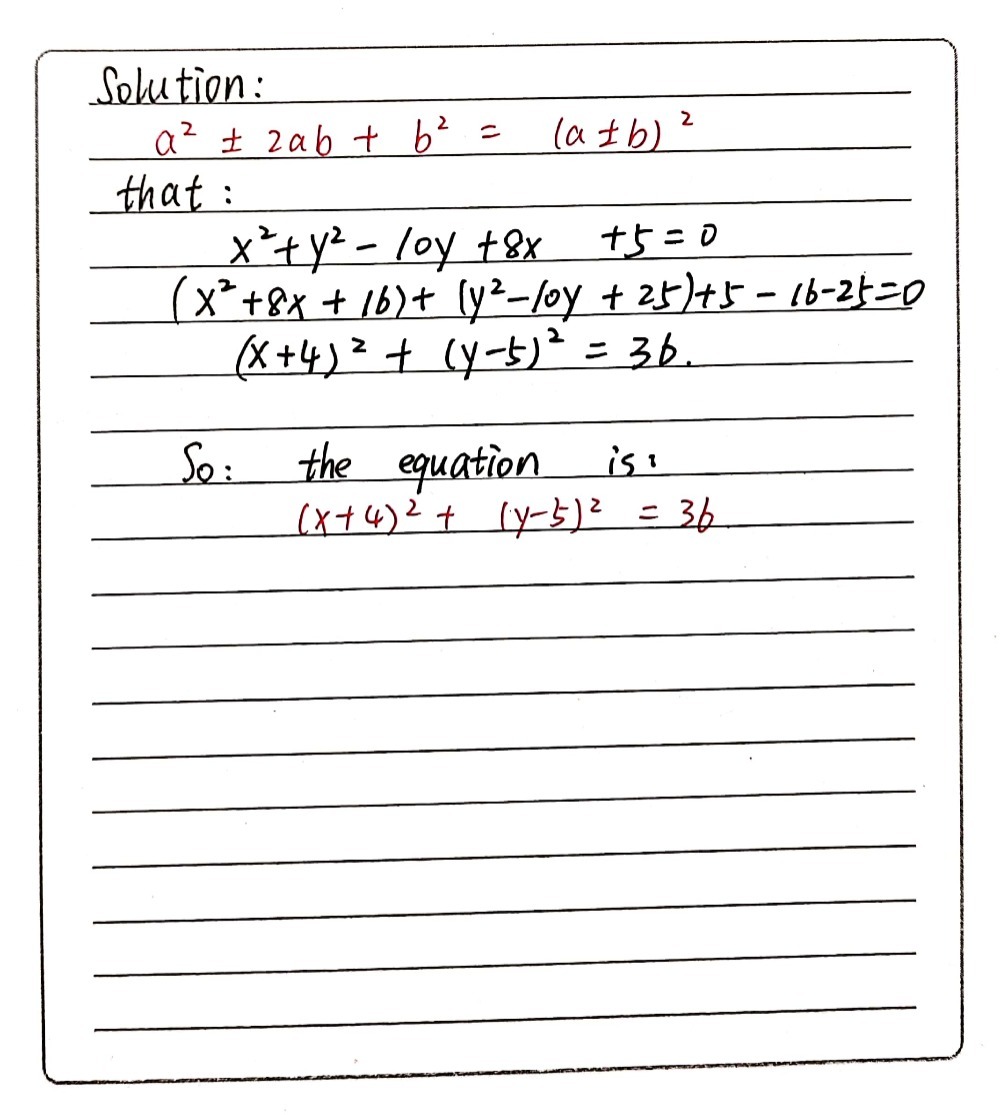 Solution:
a² ± 2ab + b² = (a ± b)²
that:
x² + y² - 10y + 8x + 5 = 0
(x² + 8x + 16) + (y² - 10y + 25) + 5 - 16 - 25 = 0
(x + 4)² + (y - 5)² = 36.
So: the equation is:
(x + 4)² + (y - 5)² = 36